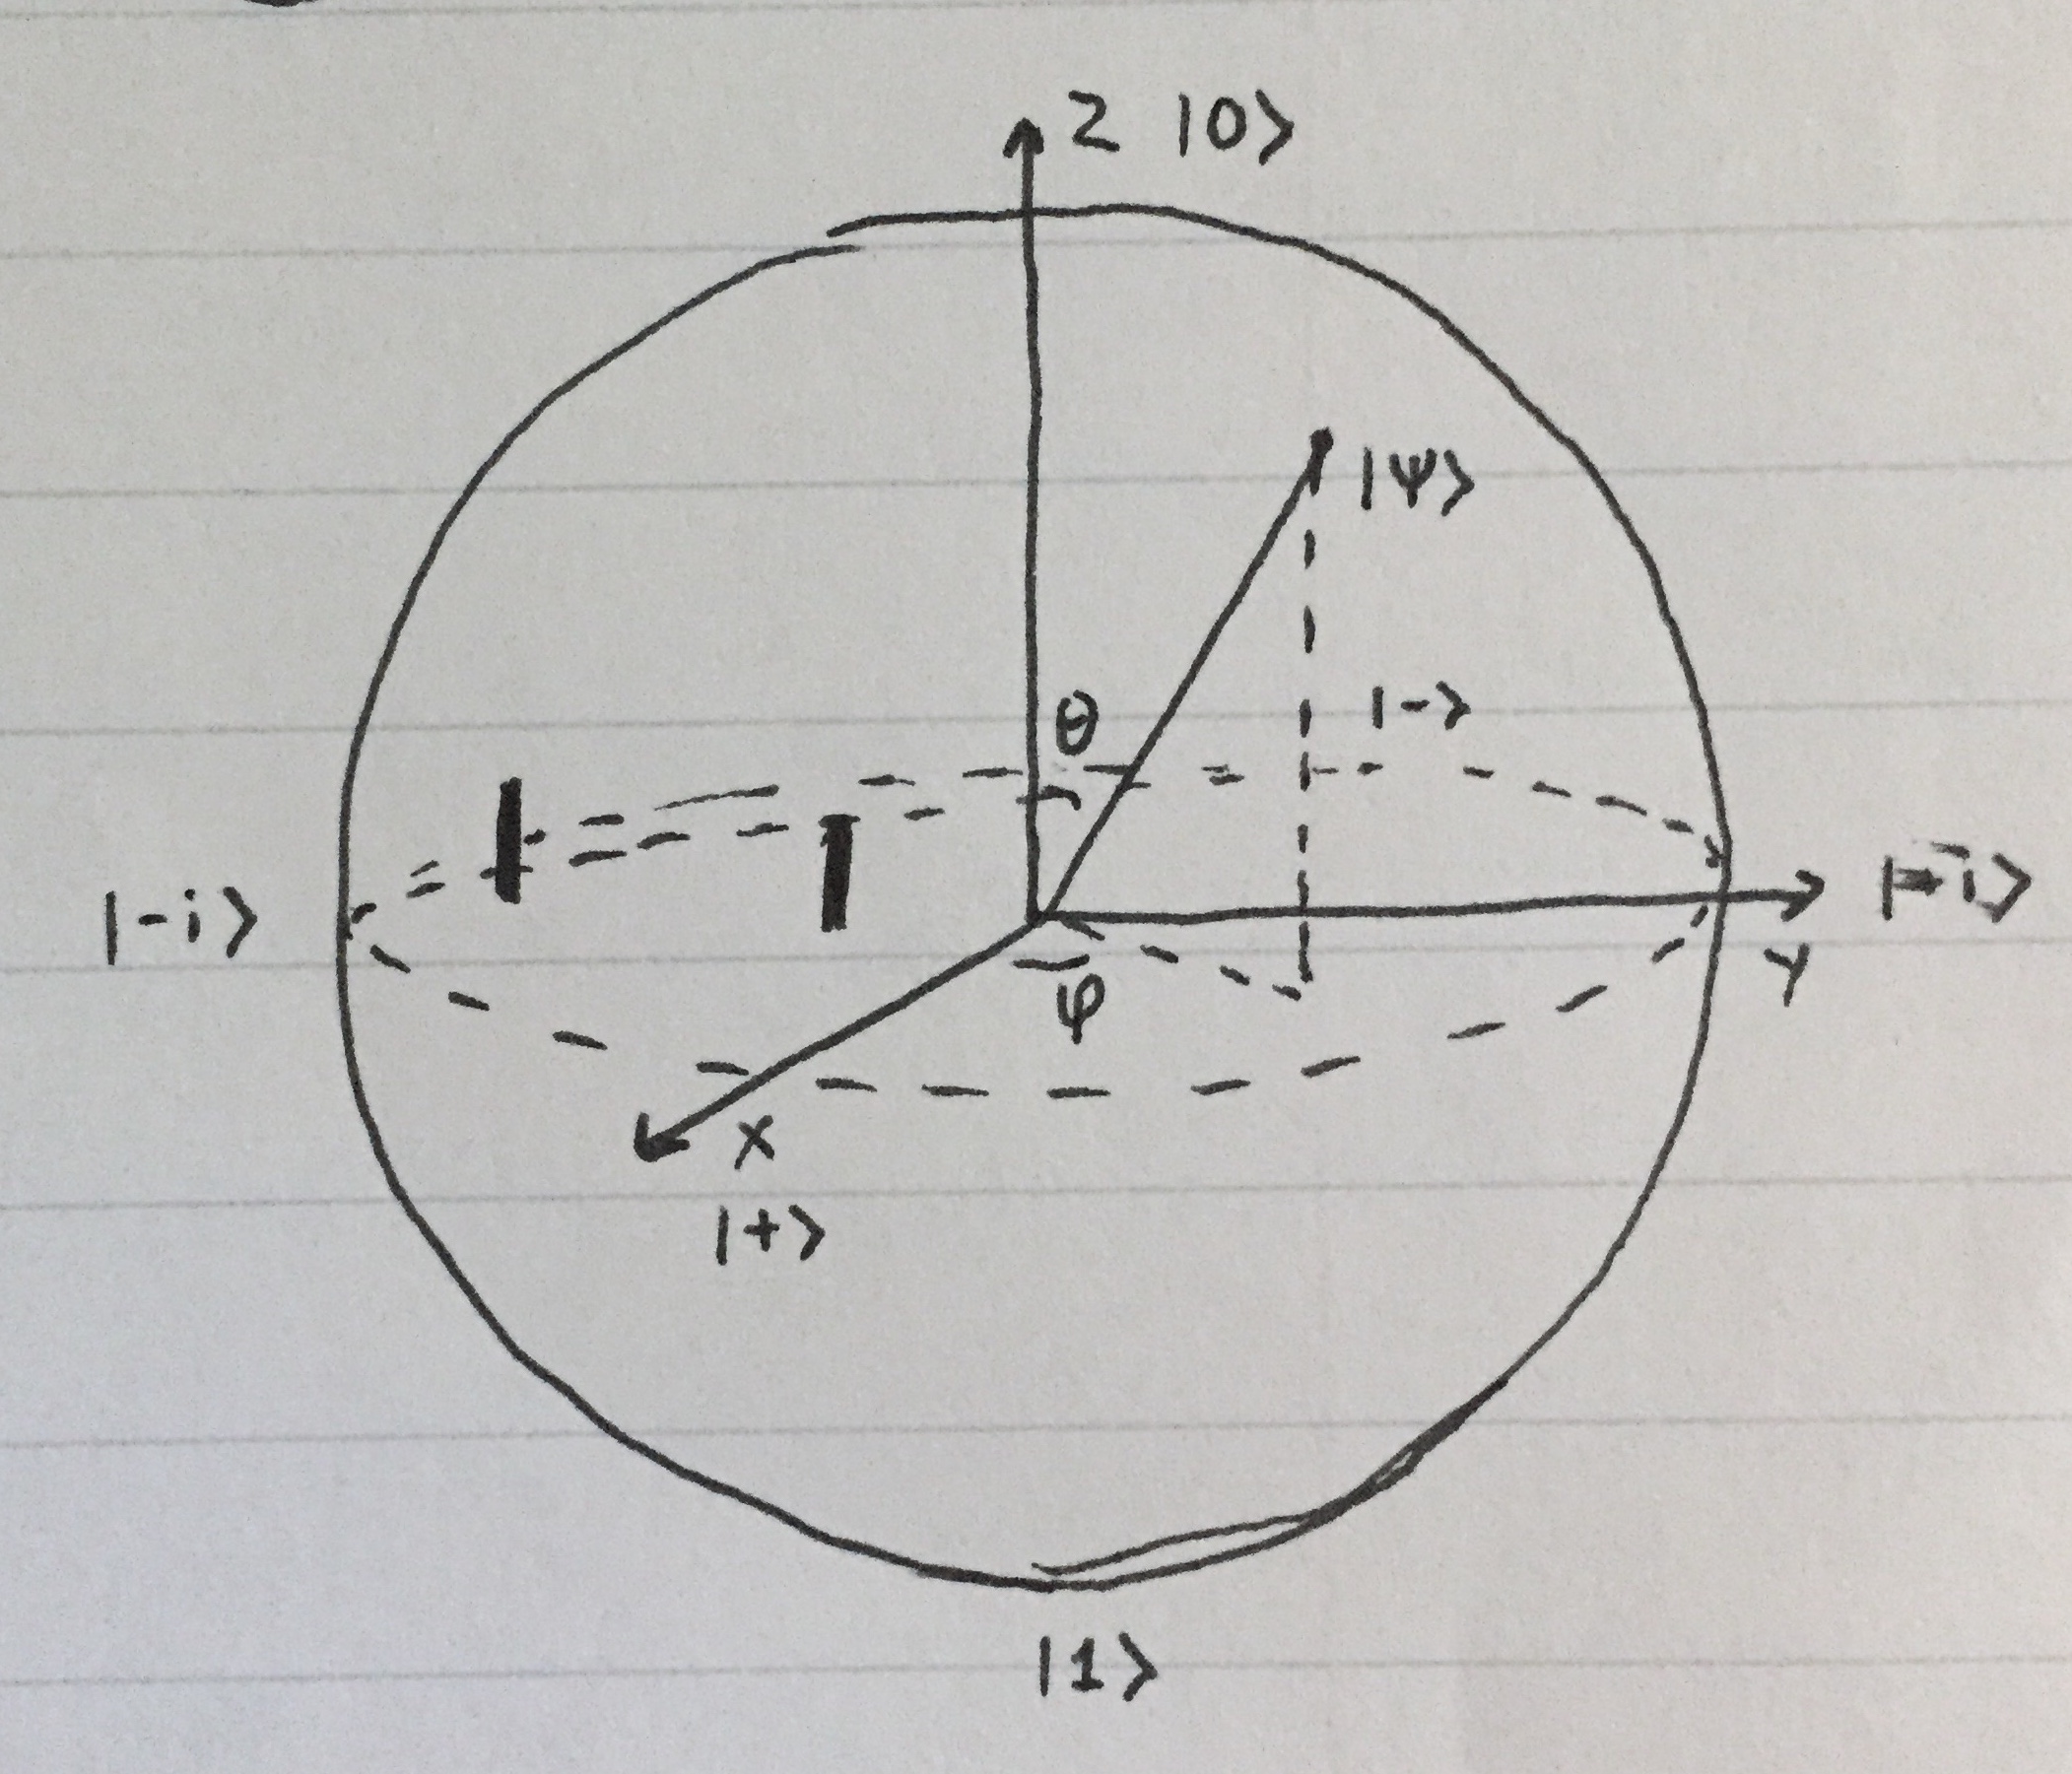 z |0⟩
|ψ⟩
θ
|-⟩
|-i⟩
y
φ
x
|+⟩
|1⟩